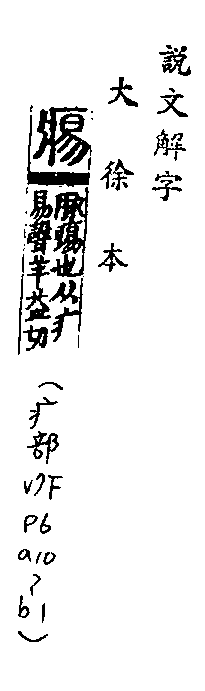 說文解字
大徐本
痬
脈痬也从疒
易聲羊益切
(疒部
v7F
p6
a10
~
b1)